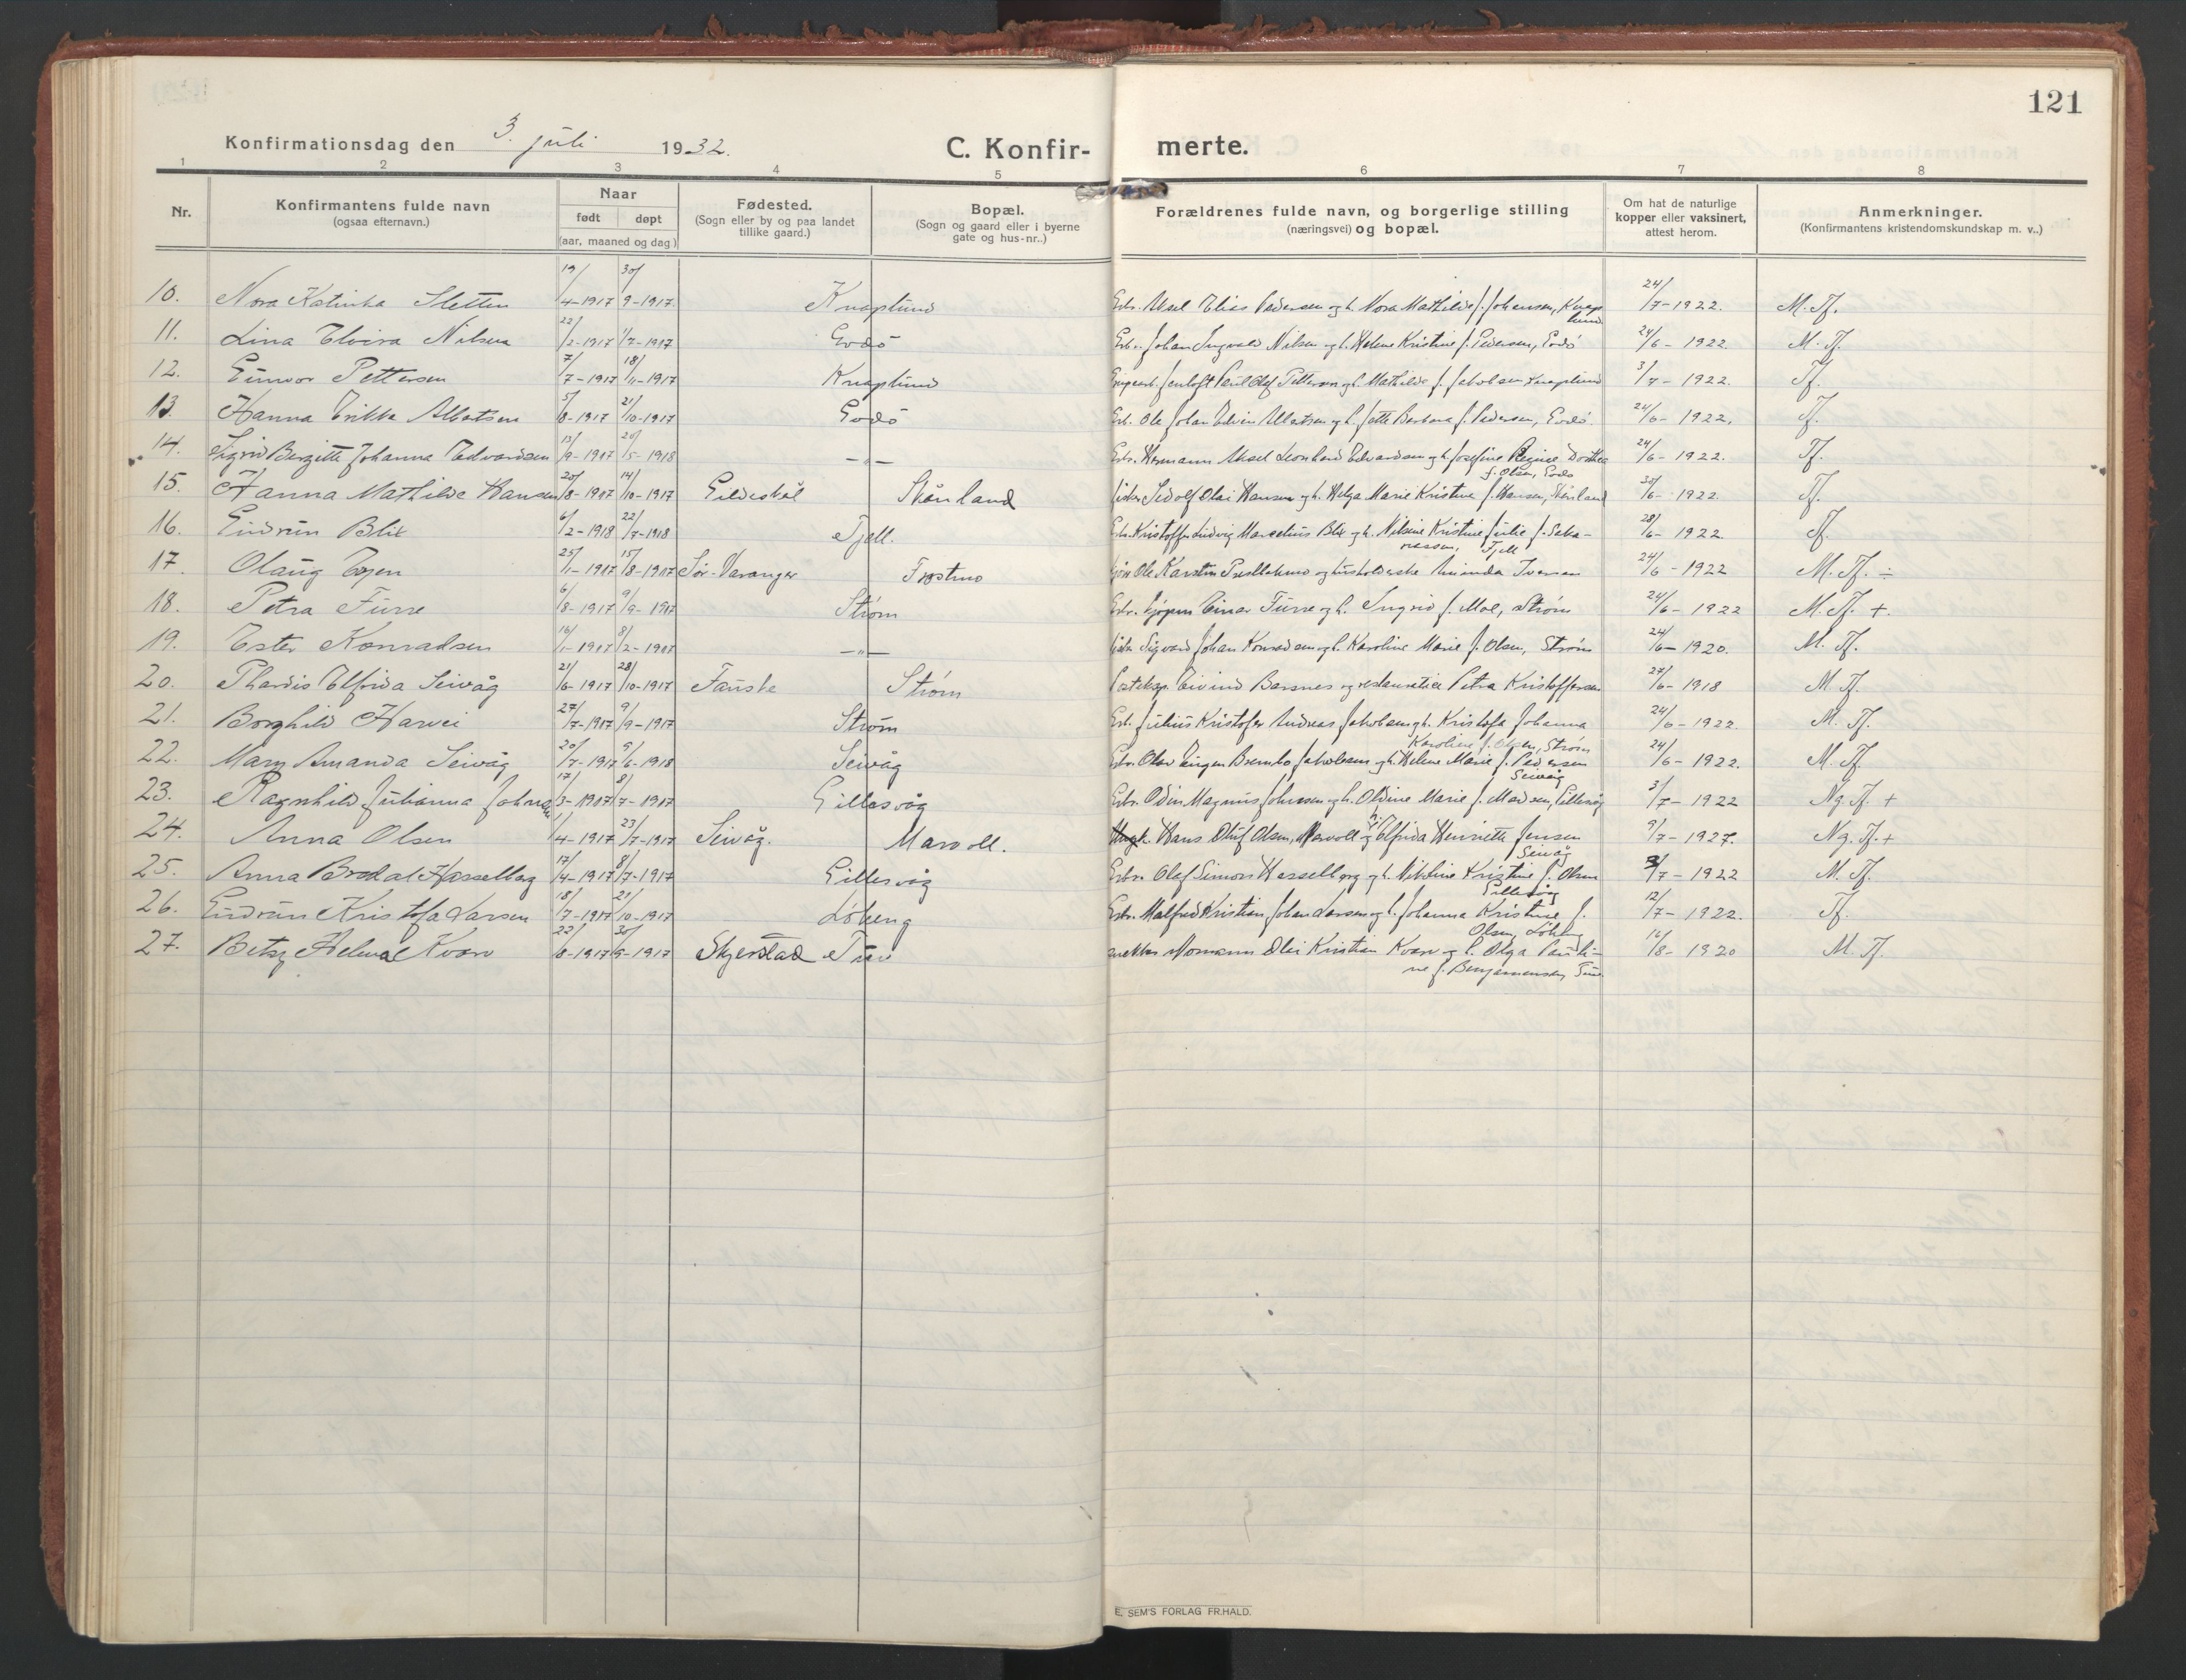 121
Konfirmationsdag den 3. juli 1932.
C. Konfir- merte.
1 2 3 4 5 6 7 8
Nr.
Konfirmantens fulde navn
(ogsaa efternavn.)
Naar
født døpt
(aar, maaned og dag.)
Fødested.
(Sogn eller by og paa landet
tillike gaard.)
Bopæl.
(Sogn og gaard eller i byerne
gate og hus-nr..)
Forældrenes fulde navn, og borgerlige stilling
(næringsvei) og bopæl.
Om hat de naturlige
kopper eller vaksinert,
attest herom.
Anmerkninger.
(Konfirmantens kristendomskundskap m. v..)
10. Nora Katinka Sletten 19/4-1917 30/9-1917 Knaplund Gbr. Aksel Elias Pedersen og h. Nora Mathilde f. Johansen, Knap- 24/7-1922. M. Tf.
lund
11. Lina Elvira Nilsen 22/2-1917 1/7-1917 Godø Gbr. Johan Ingvald Nilsen og h. Helene Kristine f. Pedersen, Godø 24/6-1922. M. Tf.
12. Gunvor Pettersen 7/7-1917 18/11-1917 Knaplund Paul Olaf Pettersen og h. Mathilde f. Jakobsen Knaplund 3/7-1922. Tf.
13. Hanna Erikka Albertsen 5/8-1917 21/10-1917 Godø Gbr. Ole Johan Edvin Albertsen og h. Jette Barbara f. Pedersen, Godø. 24/6-1922. Tf.
14. Sigrid Bergitte Johanna Edvardsen 13/9-1917 20/5-1918 -"- Gbr. Hermann Aksel Leonhard Edvardsen og h. Josefine Regine Dorthea 24/6-1922. Tf.
f. Olsen, Godø
15. Hanna Mathilde Hansen 20/8-1917 14/10-1917 Gildeskål Skånland fisker Sedolf Olai Hansen og h. Helga Marie Kristine f. Hansen, Skånland 30/6-1922. Tf.
16. Gudrun Blix 6/2-1918 22/7-1918 Tjell. Gbr. Kristoffer Ludvig Marselius Blix og h. Nilsine Kristine Julie f. Saka-
riassen, Tjell 28/6-1922. Tf.
17. Olaug Eyen 25/1-1917 15/8-1917 Sør-Varanger Frostmo Ole Karstin og husholderske Aminda Iversen 24/6-1922 M. Tf. ÷
18. Petra Furre 6/8-1917 9/9-1917 Strøm Gbr. Einar Furre og h. Ingrid f. Moe, Strøm 24/6-1922 M. Tf. +.
19. Ester Konradsen 16/1-1917 8/2-1917 -"- fisker Sigvard Johan Konradsen og h. Karoline Marie f. Olsen, Strøm 24/6-1920. M. Tf.
20. Thordis Elfrida Seivåg 21/6-1917 28/10-1917 Fauske Strøm Posteksp. Eivind Barsnes og Petra Kristoffersen 27/6-1918 M. Tf.
21. Borghild Harvei 27/7-1917 9/9-1917 Strøm Gbr. Julius Kristofer Andreas Jakobsen og h. Kristofa Johanna 24/6-1922. M. Tf.
Karoline f. Olsen, Strøm
22. Mary Amanda Seivåg 20/7-1917 9/6-1918 Seivåg Gbr. Olav Jakobsen og h. Helene Marie f. Pedersen 24/6-1922. M. Tf.
Seivåg
23. Ragnhild Julianna Johnsen 17/3-1917 8/7-1917 Gillesvåg Gbr. Odin Magnus Johnsen og h. Oldine Marie f. Madsen, Gillesvåg 3/7-1922 Ng. Tf. +
24. Anna Olsen 1/4-1917 23/7-1917 Seivåg. Marvoll. Ungk. Hans Oluf Olsen, Marvoll og Elfrida Henriette Jensen 9/7-1927. Ng. Tf. +
Seivåg
25. Anna Brodal Hasselberg 17/4-1917 8/7-1917 Gillesvåg Gbr. Olaf Simon Hasselberg og h. Nikoline Kristine f. Olsen 3/7-1922 M. Tf.
Gillesvåg
26. Gudrun Kristofa Larsen 18/7-1917 21/10-1917 Løkeng Gbr. Malfred Kristian Johan Larsen og h. Johanna Kristine f. 12/7-1922. Tf.
Olsen, Løkeng
27. Betsy Helmal Kvarv 22/8-1917 30/9-1917 Skjerstad Normann Olai Kristian Kvarv og h. Olga Pauli- 16/8-1920 M. Tf.
ne f. Benjaminsen,
E. SEM'S FORLAG FR.HALD.